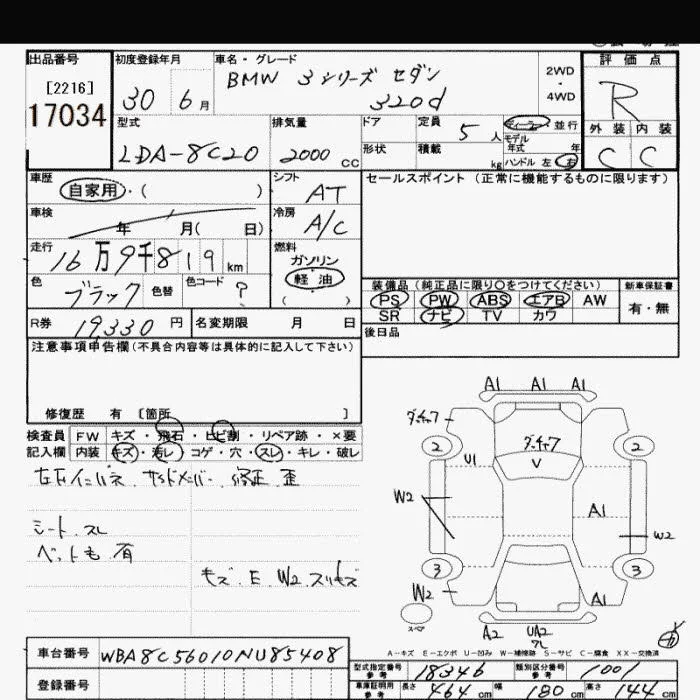 出品番号
[2216]
17034
初度登録年月
30年 6月
車名・グレード
BMW 3シリーズ セダン
320d
2WD
・
4WD
評価点
R
外装 内装
C C
型式
LDA-8C20
排気量
2000 cc
ドア
形状
定員 5人
積載 kg
ディーラー 並行
モデル
年式 年
ハンドル 左 右
車歴
自家用・( )
シフト
AT
セールスポイント (正常に機能するものに限ります)
車検
年 月( 日)
冷房
A/C
走行
16万9千819km
燃料
ガソリン
軽油
( )
色
ブラック
色替
色コード
?
装備品 (純正品に限り○をつけてください)
PS PW ABS エアB AW
SR ナビ TV カワ
新車保証書
有・無
R券
19330円
名変期限 月 日
後日品
注意事項申告欄(不具合内容等は具体的に記入して下さい)
修復歴 有 [箇所 ]
検査員
記入欄
FW キズ・飛石・ヒビ割・リペア跡・×要
内装 キズ・汚レ・コゲ・穴・スレ・キレ・破レ
サイドメンバー 修正 歪
シート スレ
ペットも 有
キズ E W2 スリキズ
A1 A1 A1
ダッチャク7
2 2
U1
V
W2
A1
W2
3 3
W2
A1
スペア
A2 UA2
A-キズ E-エクボ U-凹み W-補修跡 S-サビ C-腐食 XX-交換済
車台番号
WBA8C56010NU85408
登録番号
型式指定番号
参考
18346
類別区分番号
参考
1001
車庫証明用
参考
長さ 464 cm 幅 180 cm 高さ 144 cm